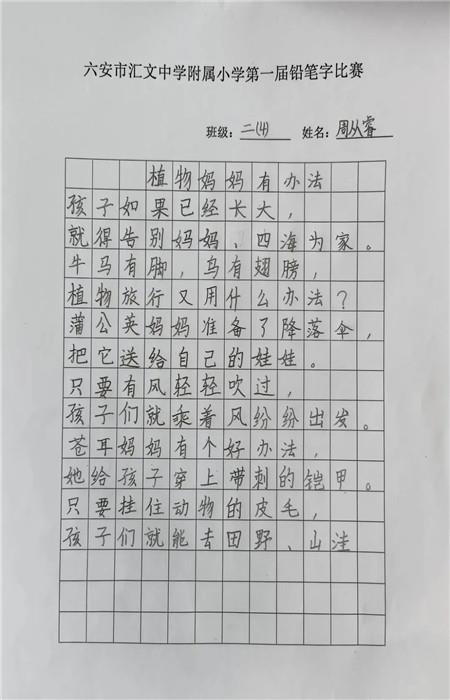 六安市汇文中学附属小学第一届铅笔字比赛
班级：二(4) 姓名：周从睿
植物妈妈有办法
孩子如果已经长大，
就得告别妈妈、四海为家。
牛马有脚，鸟有翅膀，
植物旅行又用什么办法？
蒲公英妈妈准备了降落伞，
把它送给自己的娃娃。
只要有风轻轻吹过，
孩子们就乘着风纷纷出发。
苍耳妈妈有个好办法，
她给孩子穿上带刺的铠甲。
只要挂住动物的皮毛，
孩子们就能去田野、山洼